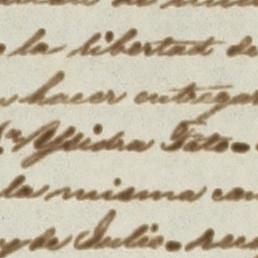 la libertad de
hacer entregar
Ysidra Tato
la misma can
de Julio